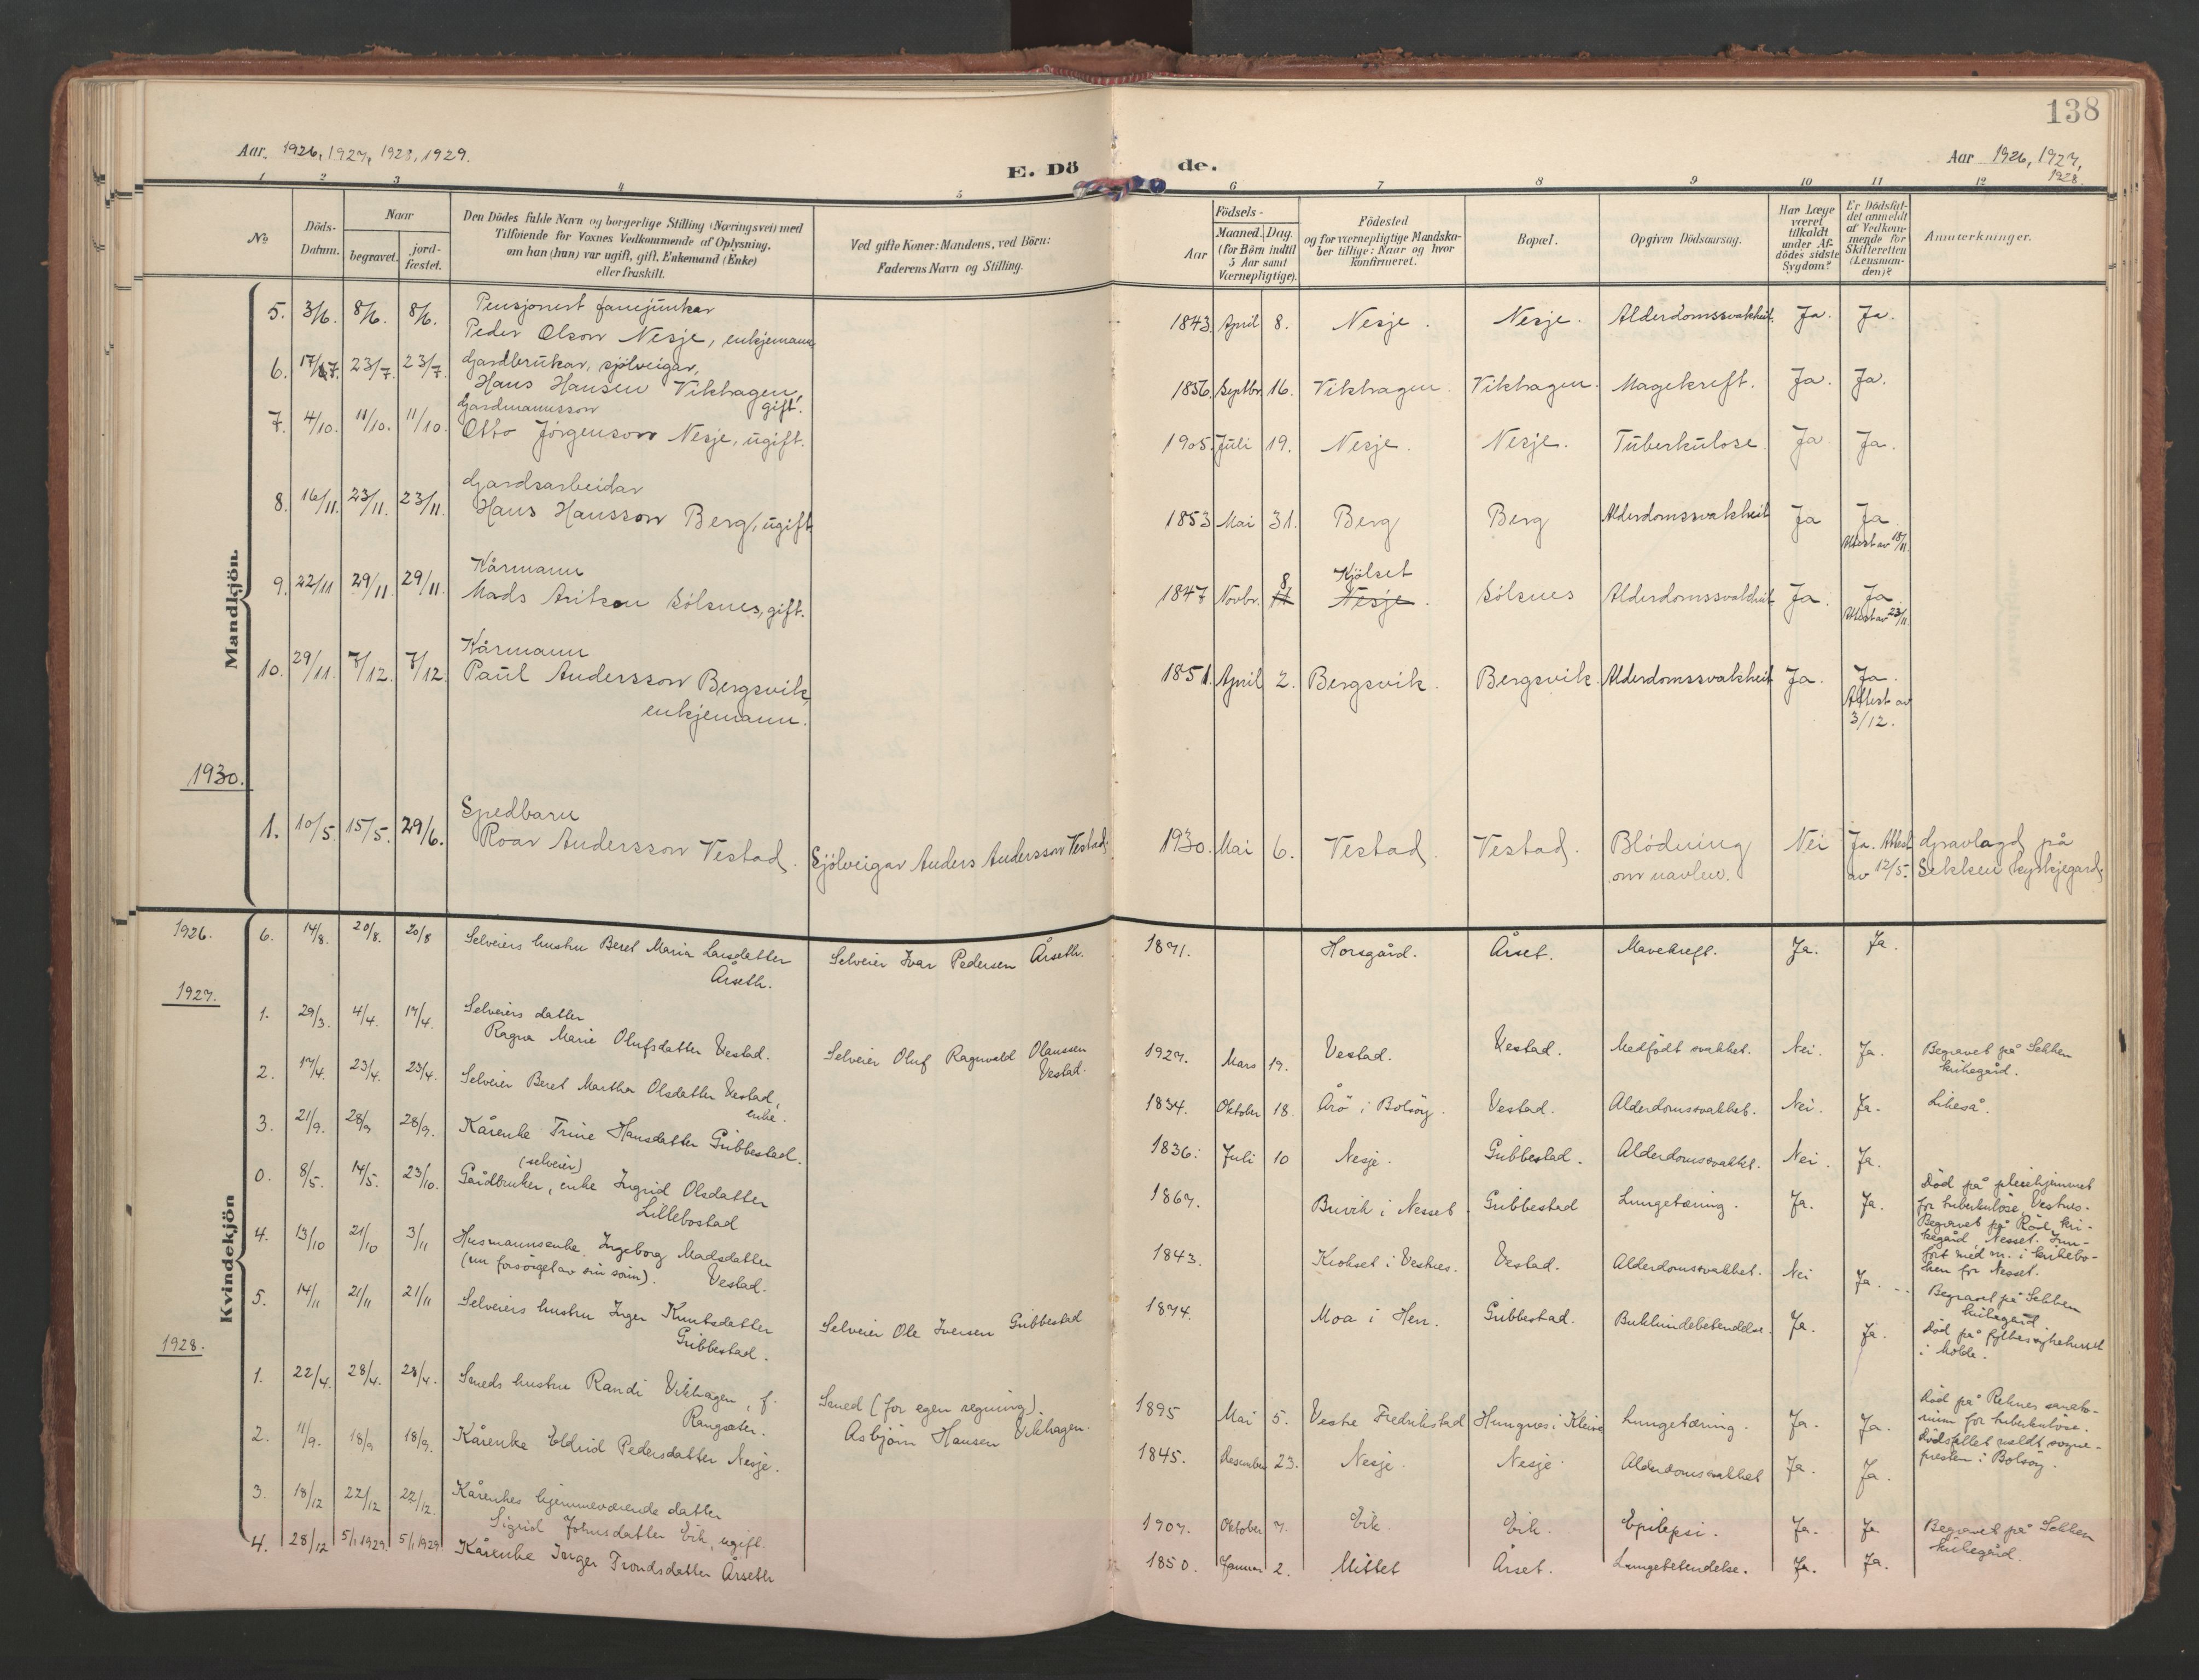 138
Aar. 1926, 1927, 1928, 1929.
E. Döde.
Aar 1926, 1927, 1928.
1 2 3 4 5 6 7 8 9 10 11 12
No
Döds-Datum.
Naar
begravet.
jordfæstet.
Den Dödes fulde Navn og borgerlige Stilling (Næringsvei) med
Tilföiende for Voxnes Vedkommende af Oplysning,
om han (hun) var ugift, gift, Enkemand (Enke)
eller fraskilt.
Ved gifte Koner: Mandens, ved Börn:
Faderens Navn og Stilling.
Födsels-
Aar
Maaned. Dag.
(for Börn indtil
5 Aar samt
Værnepligtige).
Födested
og for værnepligtige Mandskaber
tillige: Naar og hvor
konfirmeret.
Bopæl.
Opgiven Dödsaarsag.
Har Læge
været
tilkaldt
under Afdödes
sidste
Sygdom?
Er Dödsfaldet
anmeldt
af Vedkommende
for
Skifteretten
(Lensmanden)?
Anmærkninger.
Mandkjön.
5. 3/6. 8/6. 8/6. Pensjonert fanejunkar
Peder Olson Nesje, enkjemann 1843. April 8. Nesje. Nesje. Alderdomssvakheit. Ja. Ja.
6. 17/7. 23/7. 23/7. Gardbrukar, sjölveigar,
Hans Hansen Vikhagen, gift. 1856. Septbr. 16. Vikhagen. Vikhagen. Magekreft. Ja. Ja.
7. 4/10. 11/10. 11/10. Gardmannsson
Otto Jörgenson Nesje, ugift. 1905. Juli 19. Nesje. Nesje. Tuberkulose. Ja. Ja.
8. 16/11. 23/11. 23/11. Gardsarbeidar
Hans Hansson Berg, ugift 1853 Mai 31. Berg Berg Alderdomssvakheit Ja Ja
Attest av 18/11.
9. 22/11 29/11. 29/11. Kårmann
Mads Eriksen Sölsnes, gift. 1847 Novbr. 8 11 Kjölset Nesje. Sölsnes Alderdomssvakheit Ja. Ja
Attest av 23/11.
10. 29/11. 7/12. 7/12. Kårmann
Paul Andersson Bergsvik,
enkjemann. 1851. April 2. Bergsvik. Bergsvik. Alderdomssvakheit Ja. Ja.
Attest av
3/12.
1930.
1. 10/5. 15/5. 29/6. Spedbarn
Roar Andersson Vestad. Sjölveigar Anders Andersson Vestad. 1930. Mai 6. Vestad. Vestad. Blödning
om navlen. Nei Ja. Attest
av 12/5. Gravlagd på
Sekken kyrkjegard.
Kvindekjön
1926. 6. 14/8. 20/8. 20/8 Selveiers hustru Beret Maria Larsdatter
Årseth. Selveier Ivar Pedersen Årseth. 1871. Horsgård. Årset. Mavekreft. Ja. Ja.
1927.
1. 29/3. 4/4. 17/4. Selveiers datter
Ragna Marie Olufsdatter Vestad. Selveier Oluf Ragnvald Olaussen
Vestad. 1927. Mars 19. Vestad. Vestad. Medfödt svakhet. Nei. Ja. Begravet på Sekken
kirkegård.
2. 17/4. 23/4. 23/4. Selveier Beret Martha Olsdatter Vestad,
enke. 1834. Oktober 18. Årö i Bolsöy. Vestad. Alderdomssvakhet. Nei. Ja. Likeså.
3. 21/9. 28/9 28/9. Kårenke Trine Hansdatter Gribbestad. 1836. Juli 10 Nesje. Gribbestad. Alderdomssvakhet. Nei. Ja.
0. 8/5. 14/5. 23/10. (selveier)
Gårdbruker, enke Ingrid Olsdatter
Lillebostad 1867. Buvik i Nesset. Gribbestad Lungetæring. Ja. Ja. Död på pleiehjemmet
for tuberkulöse, Vestnes.
Begravet på Röd kirkegård
Nesset. Innfört
med nr. i kirkeboken
for Nesset.
4. 13/10 21/10 3/11 Husmannsenke Ingeborg Madsdatter
(nu forsörget av sin sönn). Vestad. 1843. Krohset i Vestnes. Vestad. Alderdomssvakhet. Nei Ja. Begravet på Sekken
kirkegård.
5. 14/11 21/11 21/11 Selveiers hustru Inger Knutsdatter
Gribbestad. Selveier Ole Iversen Gribbestad 1874. Moa i Hen. Gribbestad. Bukhindebetendelse. Ja. Ja. Död på fylkessykehuset
i Molde.
1928.
1. 22/4. 28/4. 28/4. Smeds hustru Randi Vikhagen, f.
Rangsæter. Smed (for egen regning).
Asbjörn Hansen Vikhagen. 1895 Mai 5. Vestre Fredrikstad Hungnes i Kleive Lungetæring. Ja. Ja. Död på Reknes sanatorium
for tuberkulöse.
Dödsfallet meldt sogne-
presten i Bolsöy.
2. 11/9. 18/9 18/9. Kårenke Eldrid Pedersdatter Nesje. 1845. Desember 23. Nesje. Nesje. Alderdomssvakhet Ja. Ja.
3. 18/12 22/12 22/12. Kårenkes hjemmeværende datter
Sigrid Johnsdatter Eik, ugift. 1907. Oktober 7. Eik. Eik. Epilepsi. Ja. Ja Begravet på Sekken
kirkegård.
4. 28/12 5/1 1929. 5/1 1929. Kårenke Inger Trondsdatter Årseth 1850. Januar 2. Mittet Årset. Lungebetendelse. Ja. Ja.